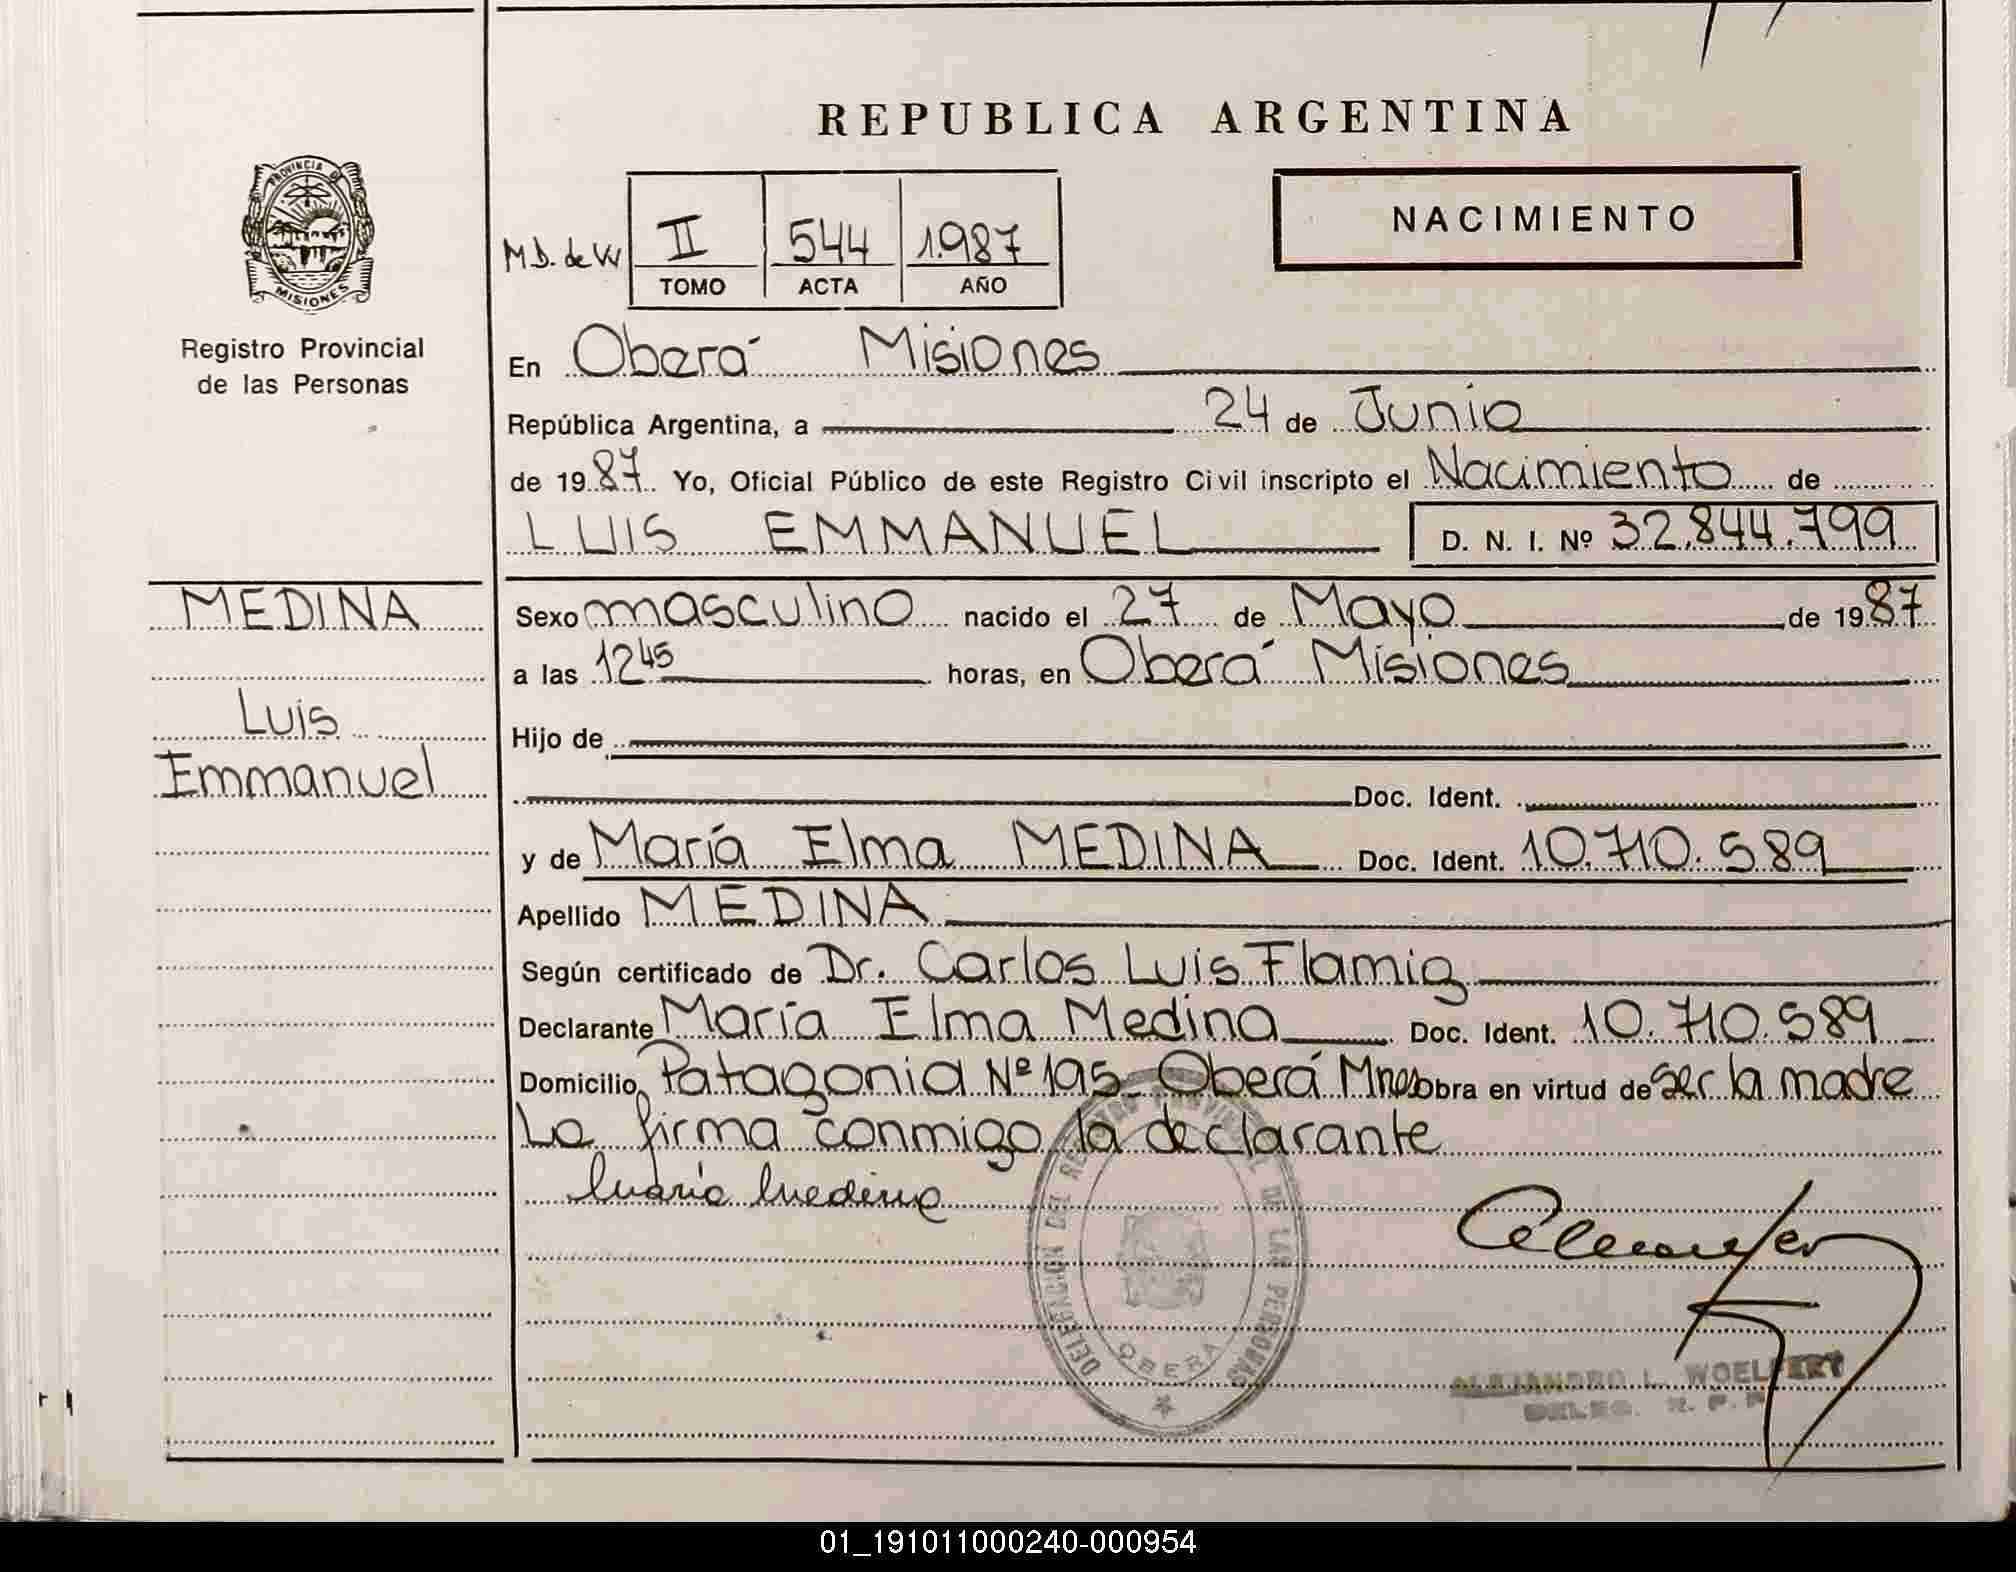 REPUBLICA ARGENTINA
PROVINCIA DE
MISIONES
Registro Provincial
de las Personas
MEDINA
Luis
Emmanuel
NACIMIENTO
M.D. de W II 544 1.987
TOMO ACTA AÑO
En Oberá Misiones
República Argentina, a 24 de Junio
de 1987 Yo, Oficial Público de este Registro Civil inscripto el Nacimiento de
LUIS EMMANUEL D. N. I. Nº 32.844.799
Sexo masculino nacido el 27 de Mayo de 1987
a las 12 45 horas, en Oberá Misiones
Hijo de
Doc. Ident.
y de María Elma MEDINA Doc. Ident. 10.710.589
Apellido MEDINA
Según certificado de Dr. Carlos Luis Flamig
Declarante María Elma Medina Doc. Ident. 10.710.589
Domicilio Patagonia Nº 195 Oberá Mnes obra en virtud de ser la madre
Lo firma conmigo la declarante
María Medina
DELEGACION DEL REGISTRO PROVINCIAL DE LAS PERSONAS
OBERA
ALEJANDRO L. WOELFERT
DELEG. R. P. P.
01_191011000240-000954